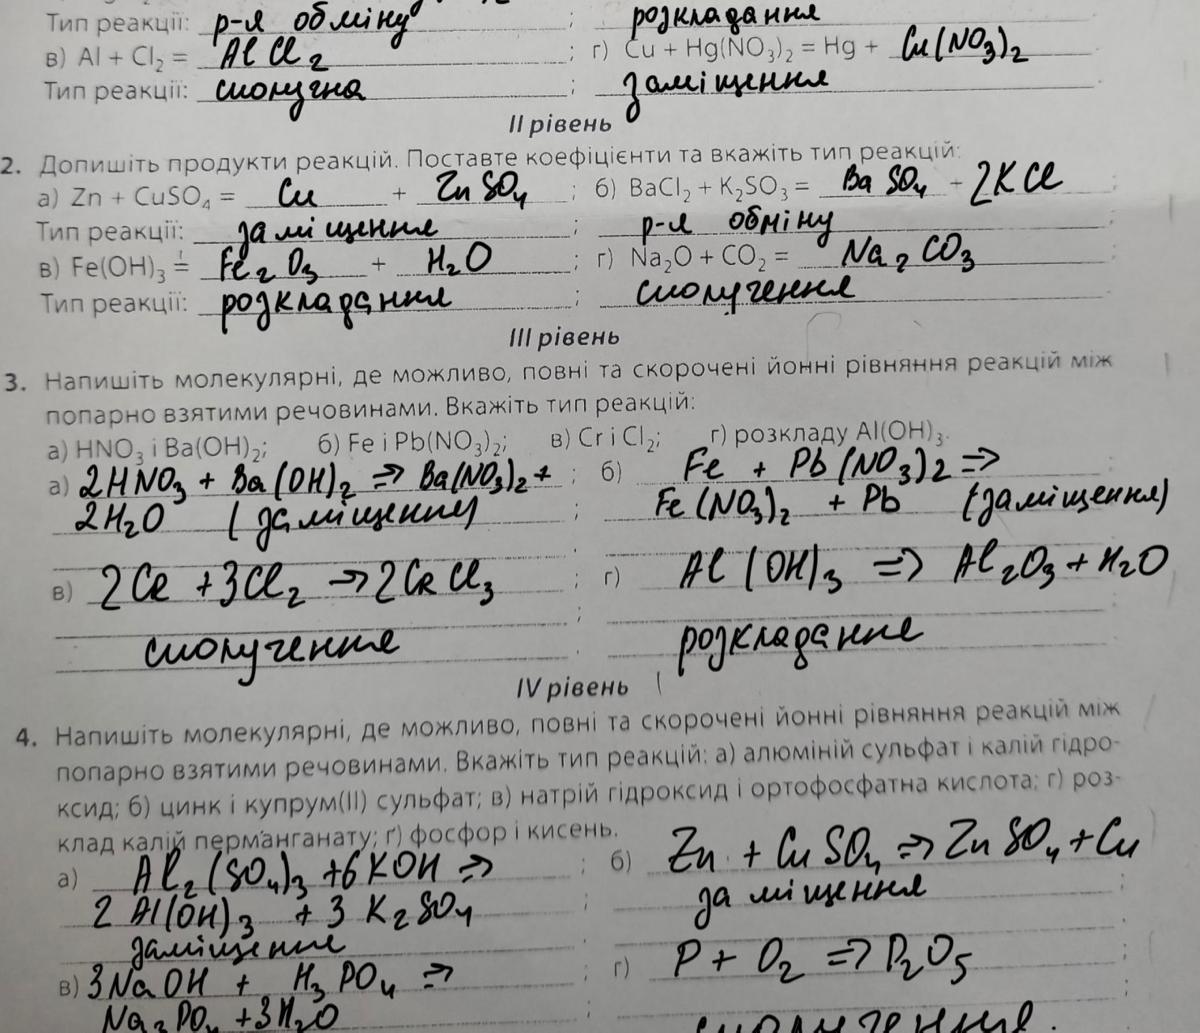 Тип реакції: р-я обміну ; розкладання
в) Al + Cl₂ = AlCl₂ ; г) Cu + Hg(NO₃)₂ = Hg + Cu(NO₃)₂
Тип реакції: сполучна ; заміщення
II рівень
2. Допишіть продукти реакцій. Поставте коефіцієнти та вкажіть тип реакцій:
а) Zn + CuSO₄ = Cu + ZnSO₄ ; б) BaCl₂ + K₂SO₃ = BaSO₄ + 2KCl ;
Тип реакції: заміщення ; р-я обміну
в) Fe(OH)₃ = Fe₂O₃ + H₂O ; г) Na₂O + CO₂ = Na₂CO₃
Тип реакції: розкладання ; сполучення
III рівень
3. Напишіть молекулярні, де можливо, повні та скорочені йонні рівняння реакцій між
попарно взятими речовинами. Вкажіть тип реакцій:
а) HNO₃ і Ba(OH)₂; б) Fe і Pb(NO₃)₂; в) Cr і Cl₂; г) розкладу Al(OH)₃.
а) 2HNO₃ + Ba(OH)₂ => Ba(NO₃)₂ + ; б) Fe + Pb(NO₃)₂ =>
2H₂O (заміщення) ; Fe(NO₃)₂ + Pb (заміщення)
в) 2Cr + 3Cl₂ → 2CrCl₃ ; г) Al(OH)₃ => Al₂O₃ + H₂O
сполучення ; розкладання
IV рівень
4. Напишіть молекулярні, де можливо, повні та скорочені йонні рівняння реакцій між
попарно взятими речовинами. Вкажіть тип реакцій: а) алюміній сульфат і калій гідро-
ксид; б) цинк і купрум(II) сульфат; в) натрій гідроксид і ортофосфатна кислота; г) роз-
клад калій перманганату; ґ) фосфор і кисень.
а) Al₂(SO₄)₃ + 6KOH => ; б) Zn + CuSO₄ => ZnSO₄ + Cu
2Al(OH)₃ + 3K₂SO₄ ; заміщення
заміщення
в) 3NaOH + H₃PO₄ => ; г) P + O₂ => P₂O₅
Na₃PO₄ + 3H₂O сполучення.